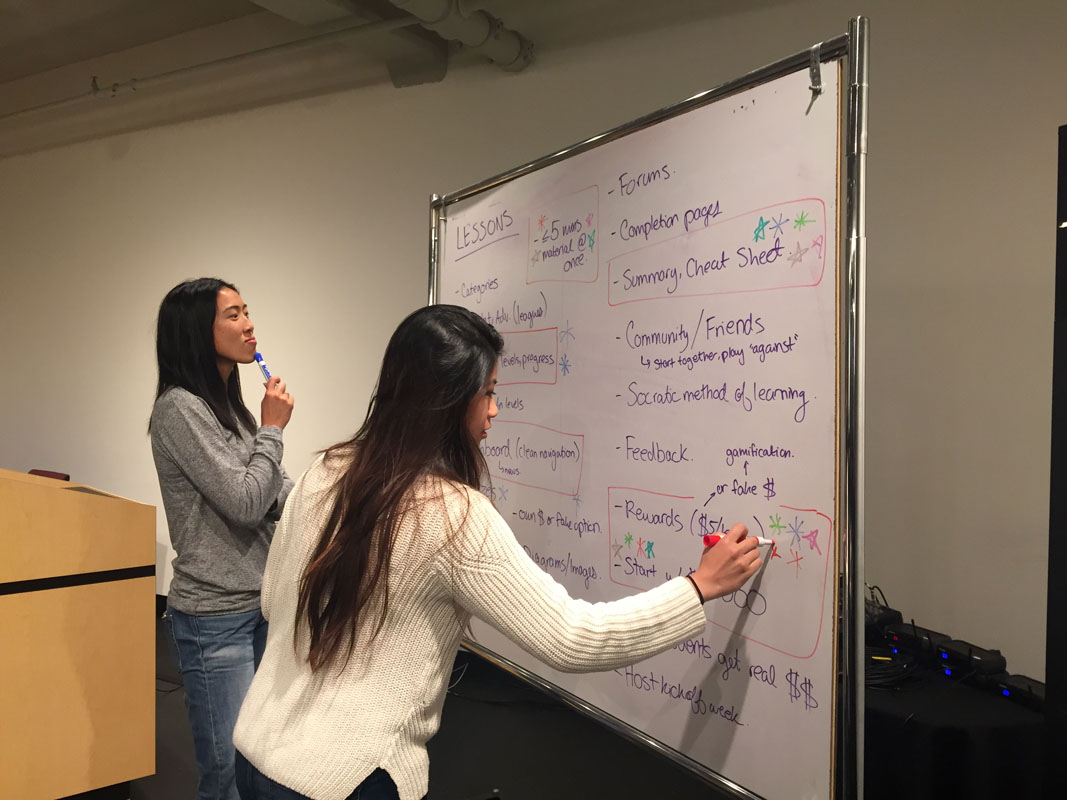 LESSONS
- ≤5 mins
material @
once.
- Categories
Adv. (leagues)
levels, progress
levels
board (clean navigation)
↳ news.
- own $ or fake option.
Diagrams/Images.
- Forums.
- Completion pages
- Summary, Cheat Sheet.
- Community/Friends
↳ start together, play "against"
- Socratic method of learning.
- Feedback.
gamification.
or fake $
- Rewards ($5/
- Start
get real $$
- Host kickoff week.